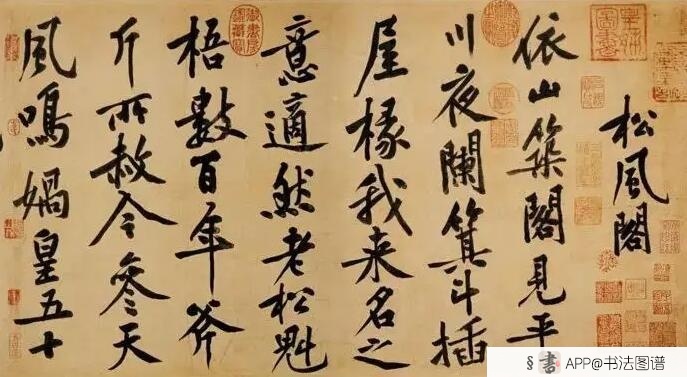 松風閣
依山築閣見平
川夜闌箕斗插
屋椽我来名之
意適然老松魁
梧數百年斧
斤所赦今參天
風鳴媧皇五十
書 APP@书法图谱